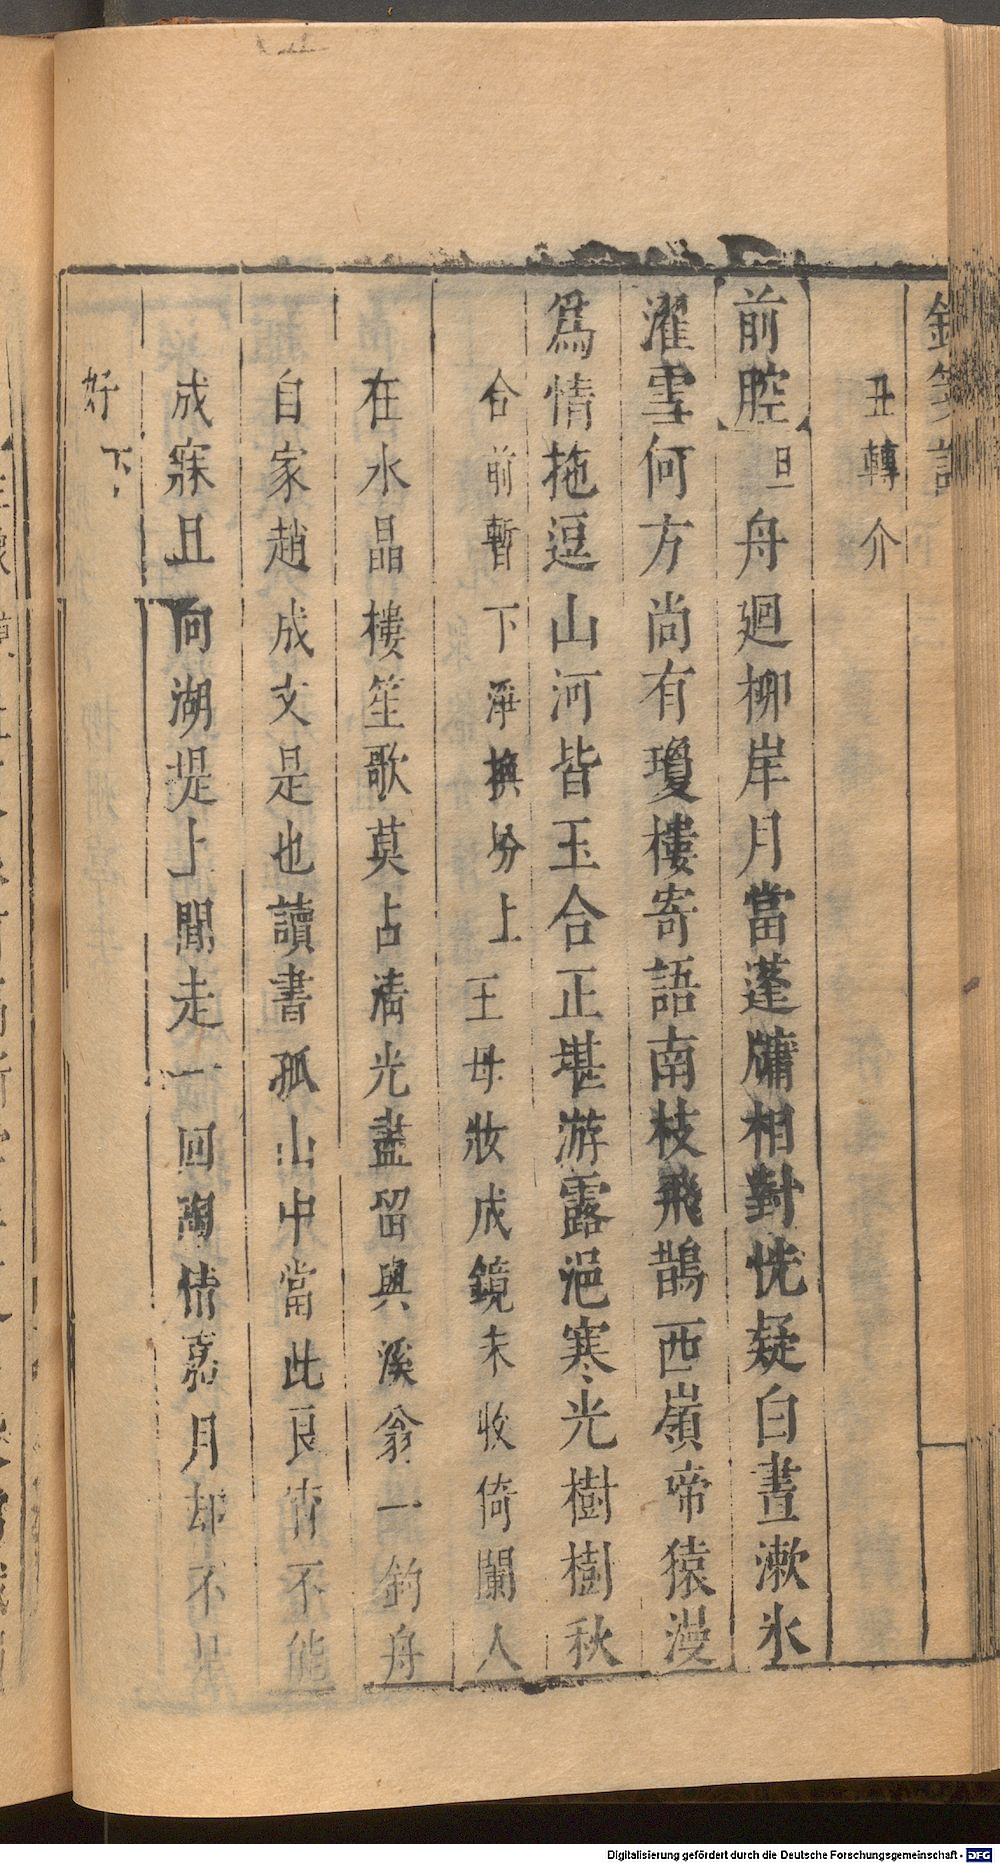 丑轉介
前腔旦舟廻柳岸月當蓬牖相對恍疑白晝漱氷
濯雪何方尚有瓊樓寄語南枝飛鵲西嶺啼猿漫
為情拖逗山河皆玉合正堪游露浥寒光樹樹秋
合前暫下淨撫扮上王母妝成鏡未收倚闌人
在水晶樓笙歌莫占清光盡留與溪翁一釣舟
自家趙成文是也讀書孤山中當此良宵不能
成寐且向湖堤上閒走一回陶情嘉月却不是
好下
Digitalisierung gefördert durch die Deutsche Forschungsgemeinschaft - DFG